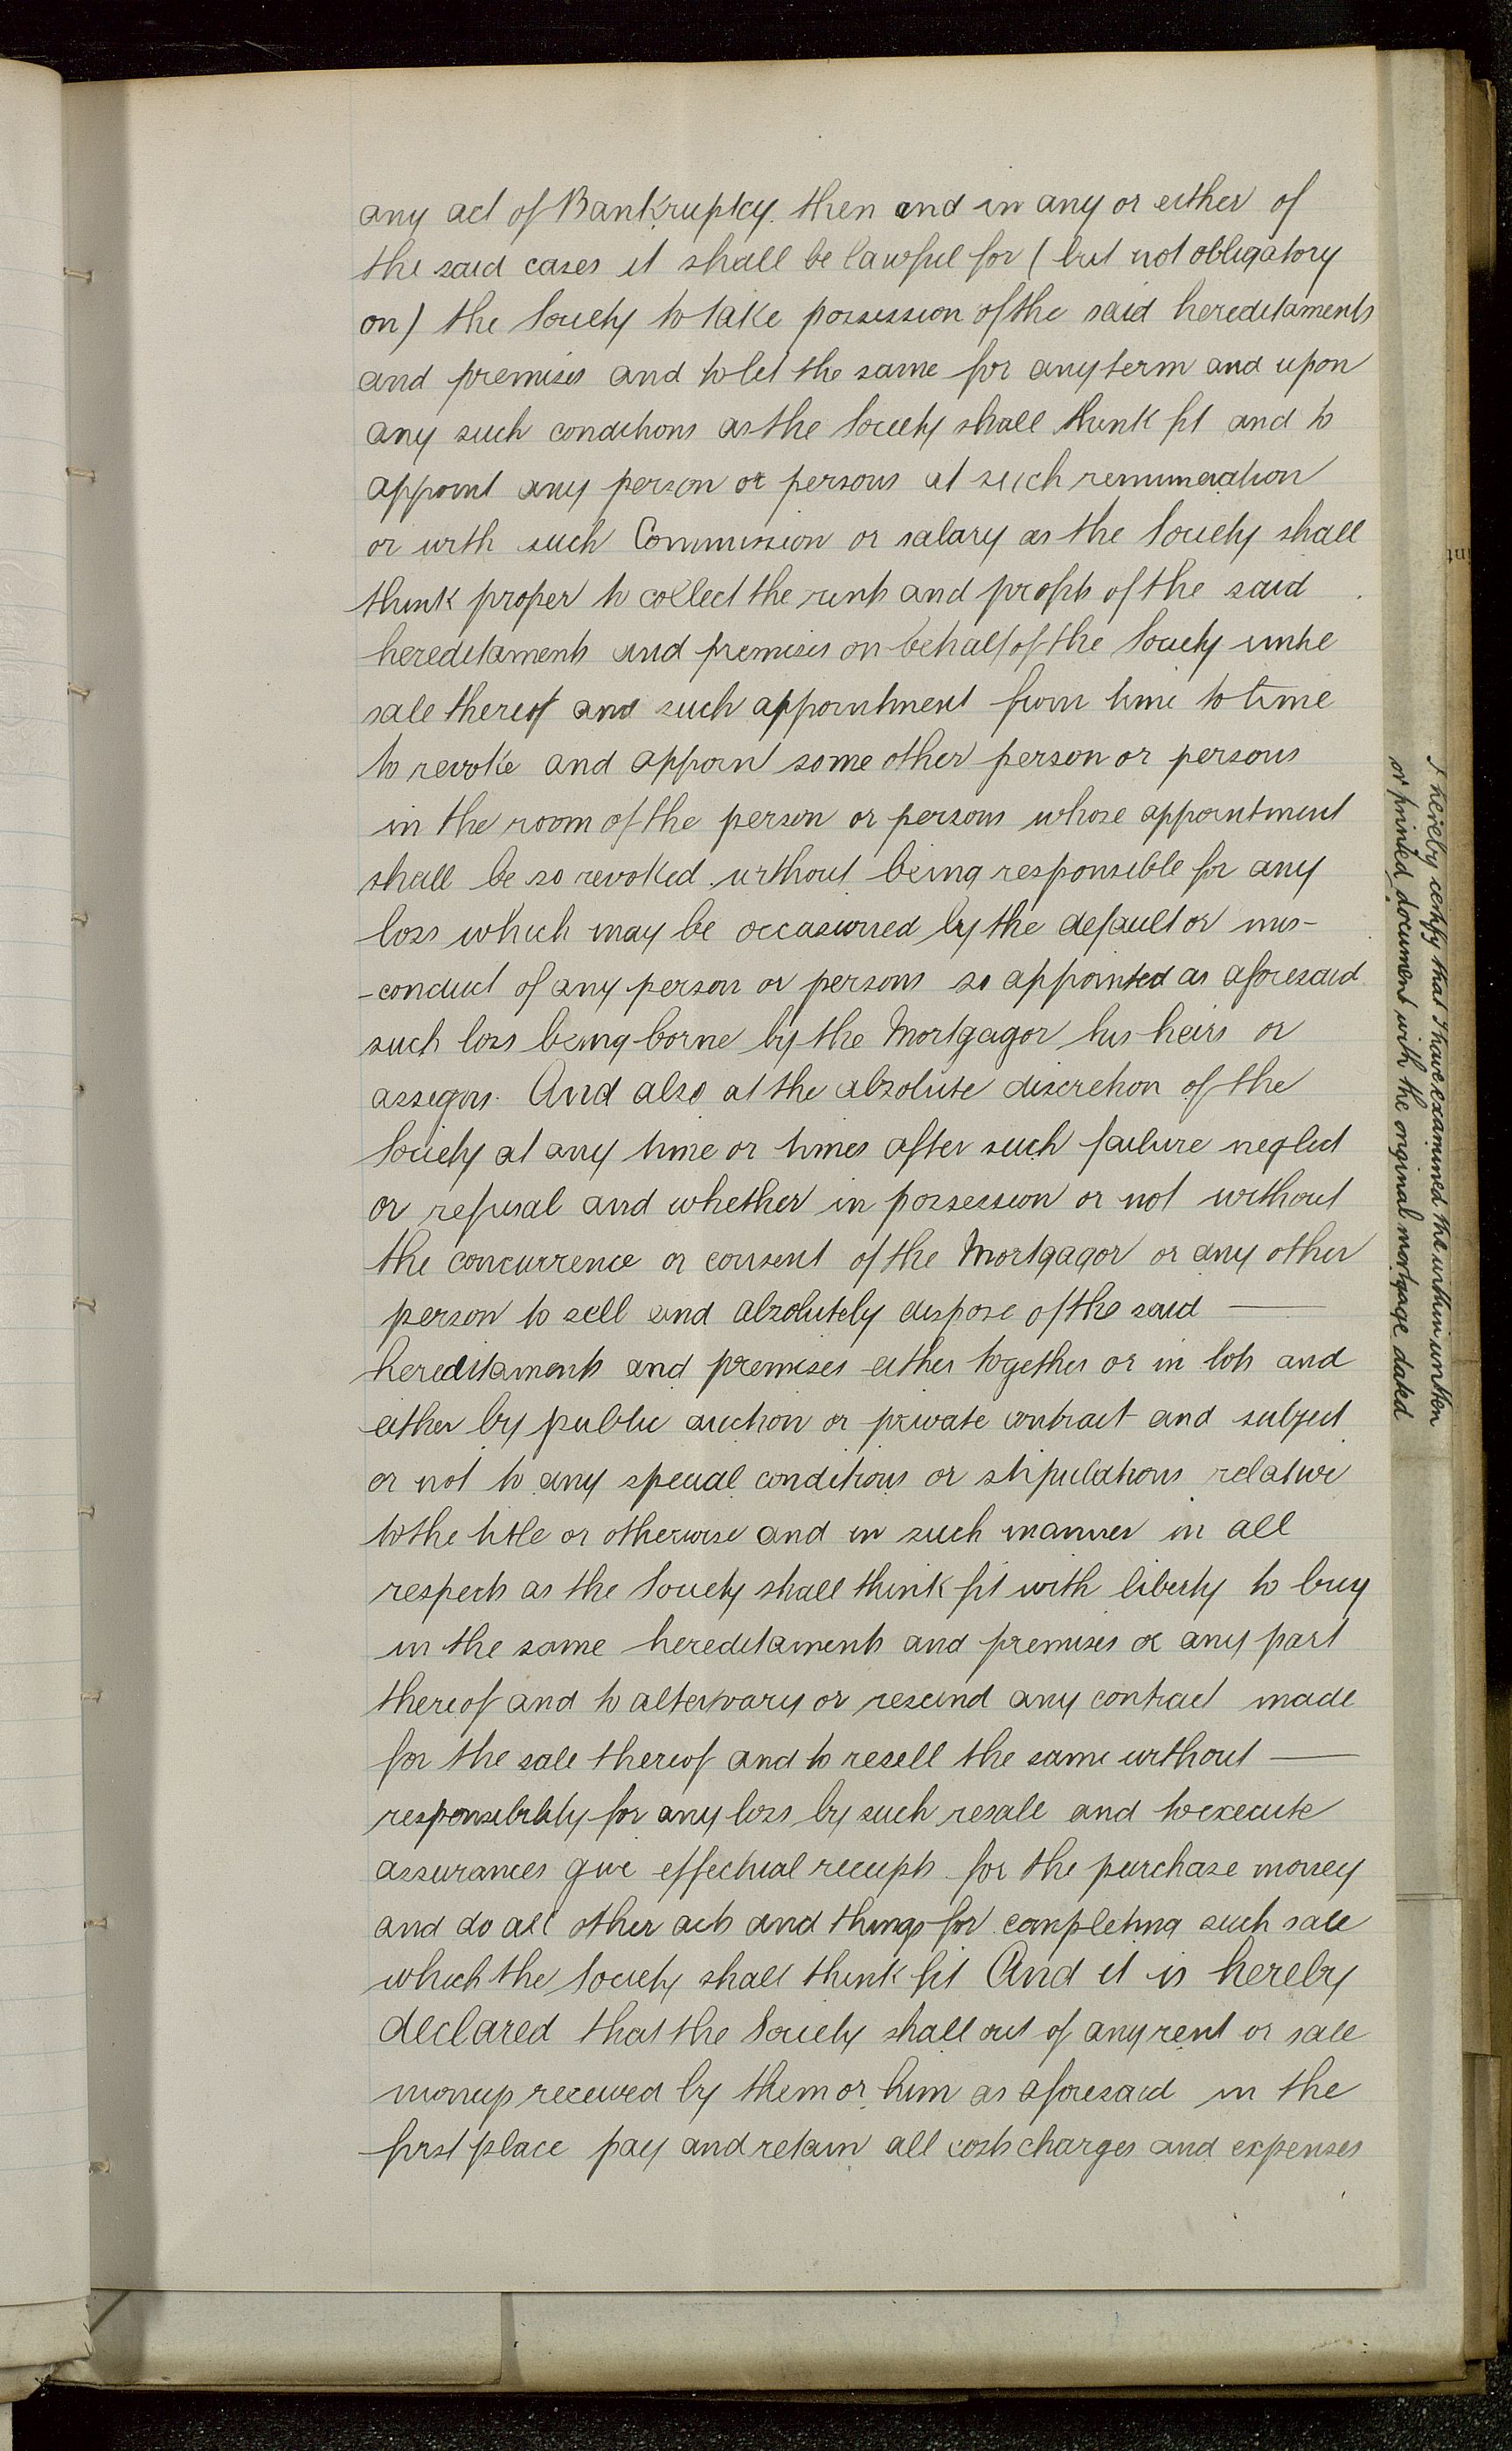 any act of Bankruptcy then and in any or either of
the said cases it shall be lawful for (but not obligatory
on) the Society to take possession of the said hereditaments
and premises and to let the same for any term and upon
any such conditions as the Society shall think fit and to
appoint any person or persons at such remuneration
or with such Commission or salary as the Society shall
think proper to collect the rents and profits of the said
hereditaments and premises on behalf of the Society until
sale thereof and such appointment from time to time
to revoke and appoint some other person or persons
in the room of the person or persons whose appointment
shall be so revoked without being responsible for any
loss which may be occasioned by the default or mis-
-conduct of any person or persons so appointed as aforesaid
such loss being borne by the Mortgagor his heirs or
assigns. And also at the absolute discretion of the
Society at any time or times after such failure neglect
or refusal and whether in possession or not without
the concurrence or consent of the Mortgagor or any other
person to sell and absolutely dispose of the said —
hereditaments and premises either together or in lots and
either by public auction or private contract and subject
or not to any special conditions or stipulations relative
to the title or otherwise and in such manner in all
respects as the Society shall think fit with liberty to buy
in the same hereditaments and premises or any part
thereof and to alter vary or rescind any contract made
for the sale thereof and to resell the same without —
responsibility for any loss by such resale and to execute
assurances give effectual receipts for the purchase money
and do all other acts and things for completing such sale
which the Society shall think fit And it is hereby
declared that the Society shall out of any rent or sale
moneys received by them or him as aforesaid in the
first place pay and retain all costs charges and expenses
I hereby certify that I have examined the within written
or printed document with the original mortgage dated